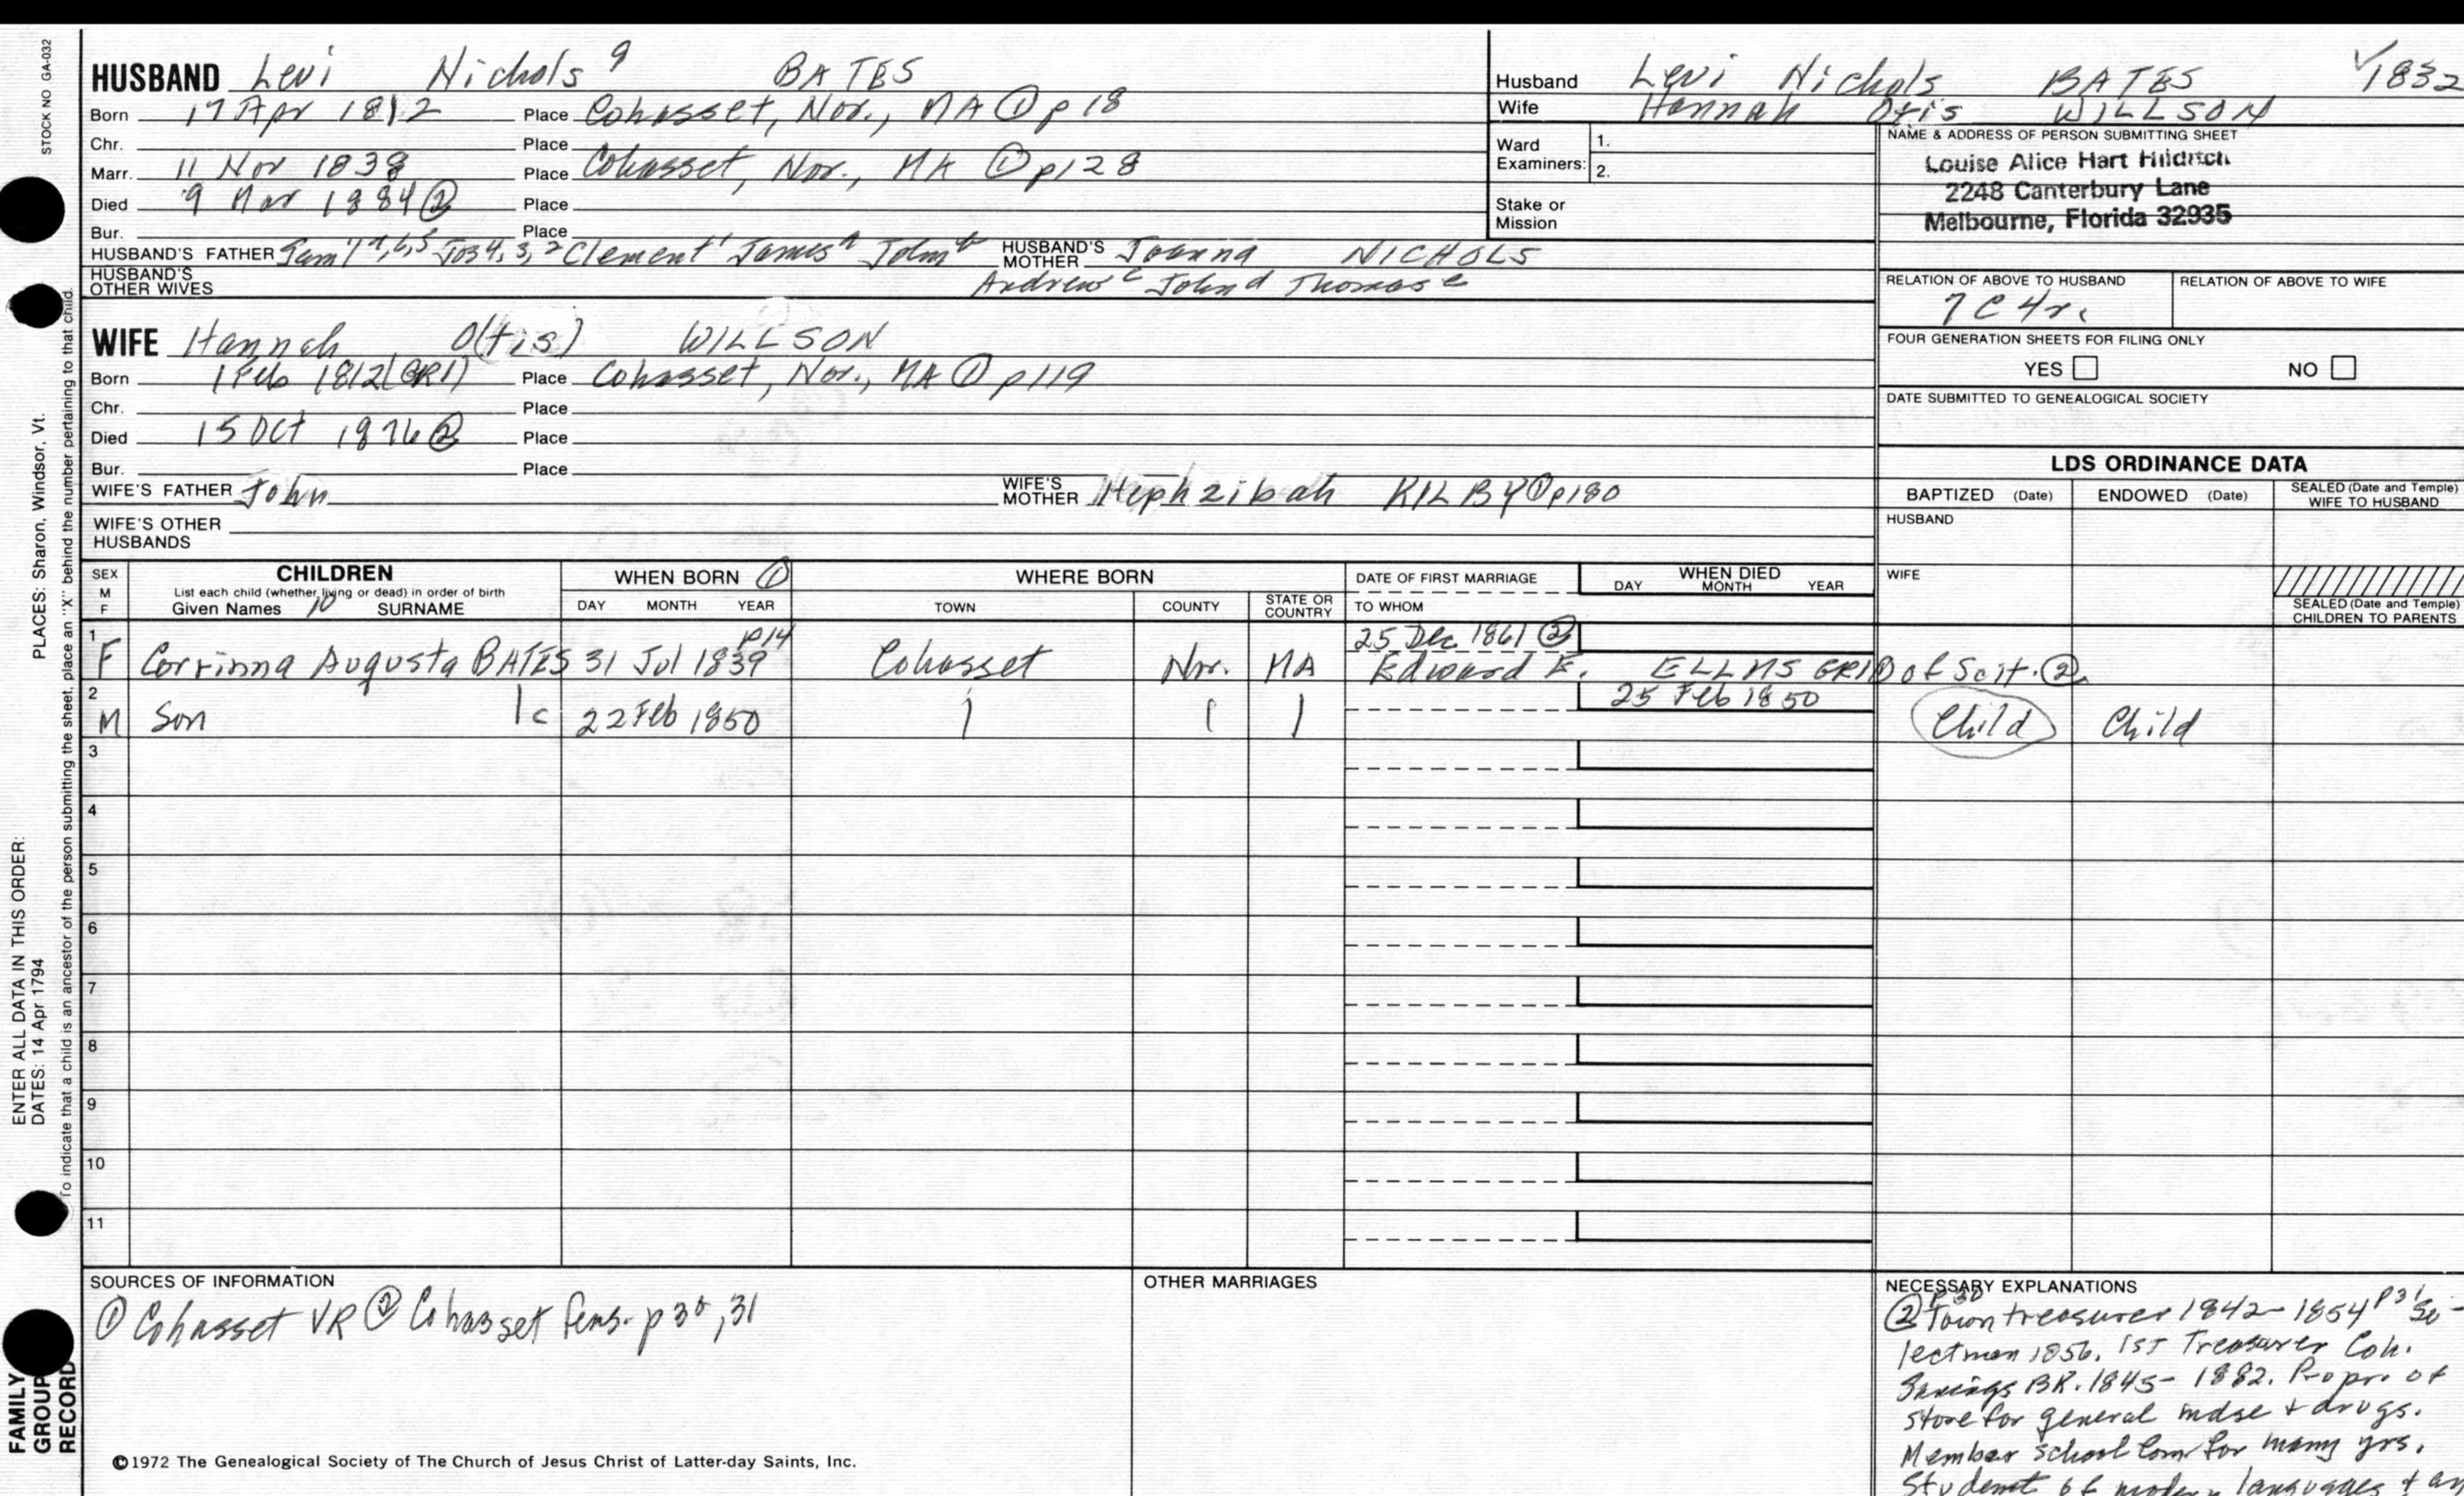 HUSBAND Levi Nichols 9 BATES
Born 17 Apr 1812 Place Cohasset, Nor., MA ① p 18
Chr. Place
Marr. 11 Nov 1838 Place Cohasset, Nor., MA ① p128
Died 9 Mar 1884 ② Place
Bur. Place
HUSBAND'S FATHER Clement 1 James a John b HUSBAND'S MOTHER Joanna NICHOLS
HUSBAND'S OTHER WIVES Andrew c John d Thomas e
WIFE Hannah O(tis) WILLSON
Born 1 Feb 1812 (GR1) Place Cohasset, Nor., MA ① p119
Chr. Place
Died 15 Oct 1876 ② Place
Bur. Place
WIFE'S FATHER John WIFE'S MOTHER Hephzibah KILBY ① p180
WIFE'S OTHER HUSBANDS
Husband Levi Nichols BATES √1832
Wife Hannah Otis WILLSON
Ward Examiners: 1.
2.
Stake or Mission
NAME & ADDRESS OF PERSON SUBMITTING SHEET
Louise Alice Hart Hilditch
2248 Canterbury Lane
Melbourne, Florida 32935
RELATION OF ABOVE TO HUSBAND RELATION OF ABOVE TO WIFE
7C4r.
FOUR GENERATION SHEETS FOR FILING ONLY
YES NO
DATE SUBMITTED TO GENEALOGICAL SOCIETY
LDS ORDINANCE DATA
BAPTIZED (Date) ENDOWED (Date) SEALED (Date and Temple) WIFE TO HUSBAND
HUSBAND
WIFE
SEALED (Date and Temple) CHILDREN TO PARENTS
SEX M F CHILDREN WHEN BORN ① WHERE BORN DATE OF FIRST MARRIAGE WHEN DIED
List each child (whether living or dead) in order of birth
Given Names 10 SURNAME DAY MONTH YEAR TOWN COUNTY STATE OR COUNTRY TO WHOM DAY MONTH YEAR
p14 25 Dec 1861 ②
1 F Corrinna Augusta BATES 31 Jul 1839 Cohasset Nor. MA Edward E. ELLMS of Scit. ②
25 Feb 1850
2 M Son 1c 22 Feb 1850 Child Child
3
4
5
6
7
8
9
10
11
SOURCES OF INFORMATION
① Cohasset VR ② Cohasset Gens. p 30, 31
OTHER MARRIAGES
NECESSARY EXPLANATIONS
② p30 Town treasurer 1842-1854 p31 Se-
lectman 1856. 1st Treasurer Coh.
Savings BK. 1845-1882. Propr. of
store for general mdse + drugs.
Member school Com. for many yrs.
Student of modern languages +
©1972 The Genealogical Society of The Church of Jesus Christ of Latter-day Saints, Inc.
STOCK NO GA-032
To indicate that a child is an ancestor of the person submitting the sheet, place an "X" behind the number pertaining to that child.
ENTER ALL DATA IN THIS ORDER:
DATES: 14 Apr 1794 PLACES: Sharon, Windsor, Vt.
FAMILY
GROUP
RECORD